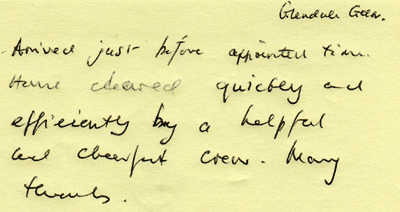 Glendale Gdn.
Arrived just before appointed time.
Home cleared quickly and
efficiently by a helpful
and cheerful crew. Many
thanks.